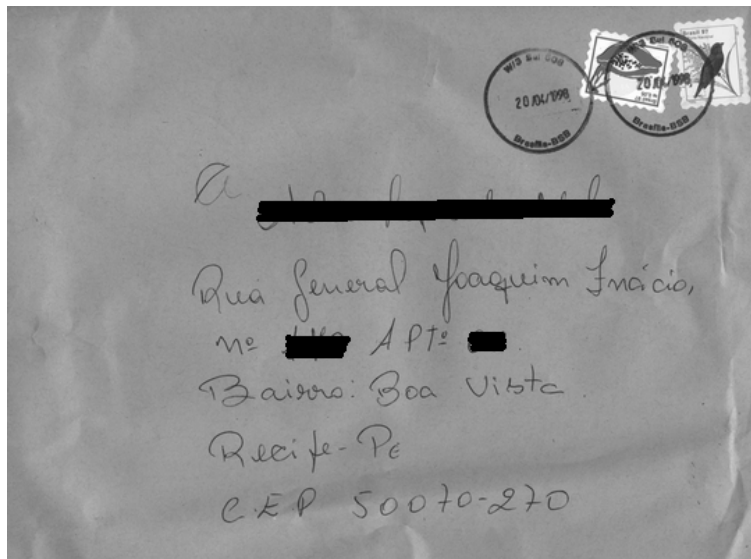 W/3 Sul 508
20/04/1998
Brasília-BSB
20/04/1998
Brasília-BSB
Brasil 97
A
Rua General Joaquim Inácio,
nº APTº
Bairro: Boa Vista
Recife-PE
C.E.P 50070-270